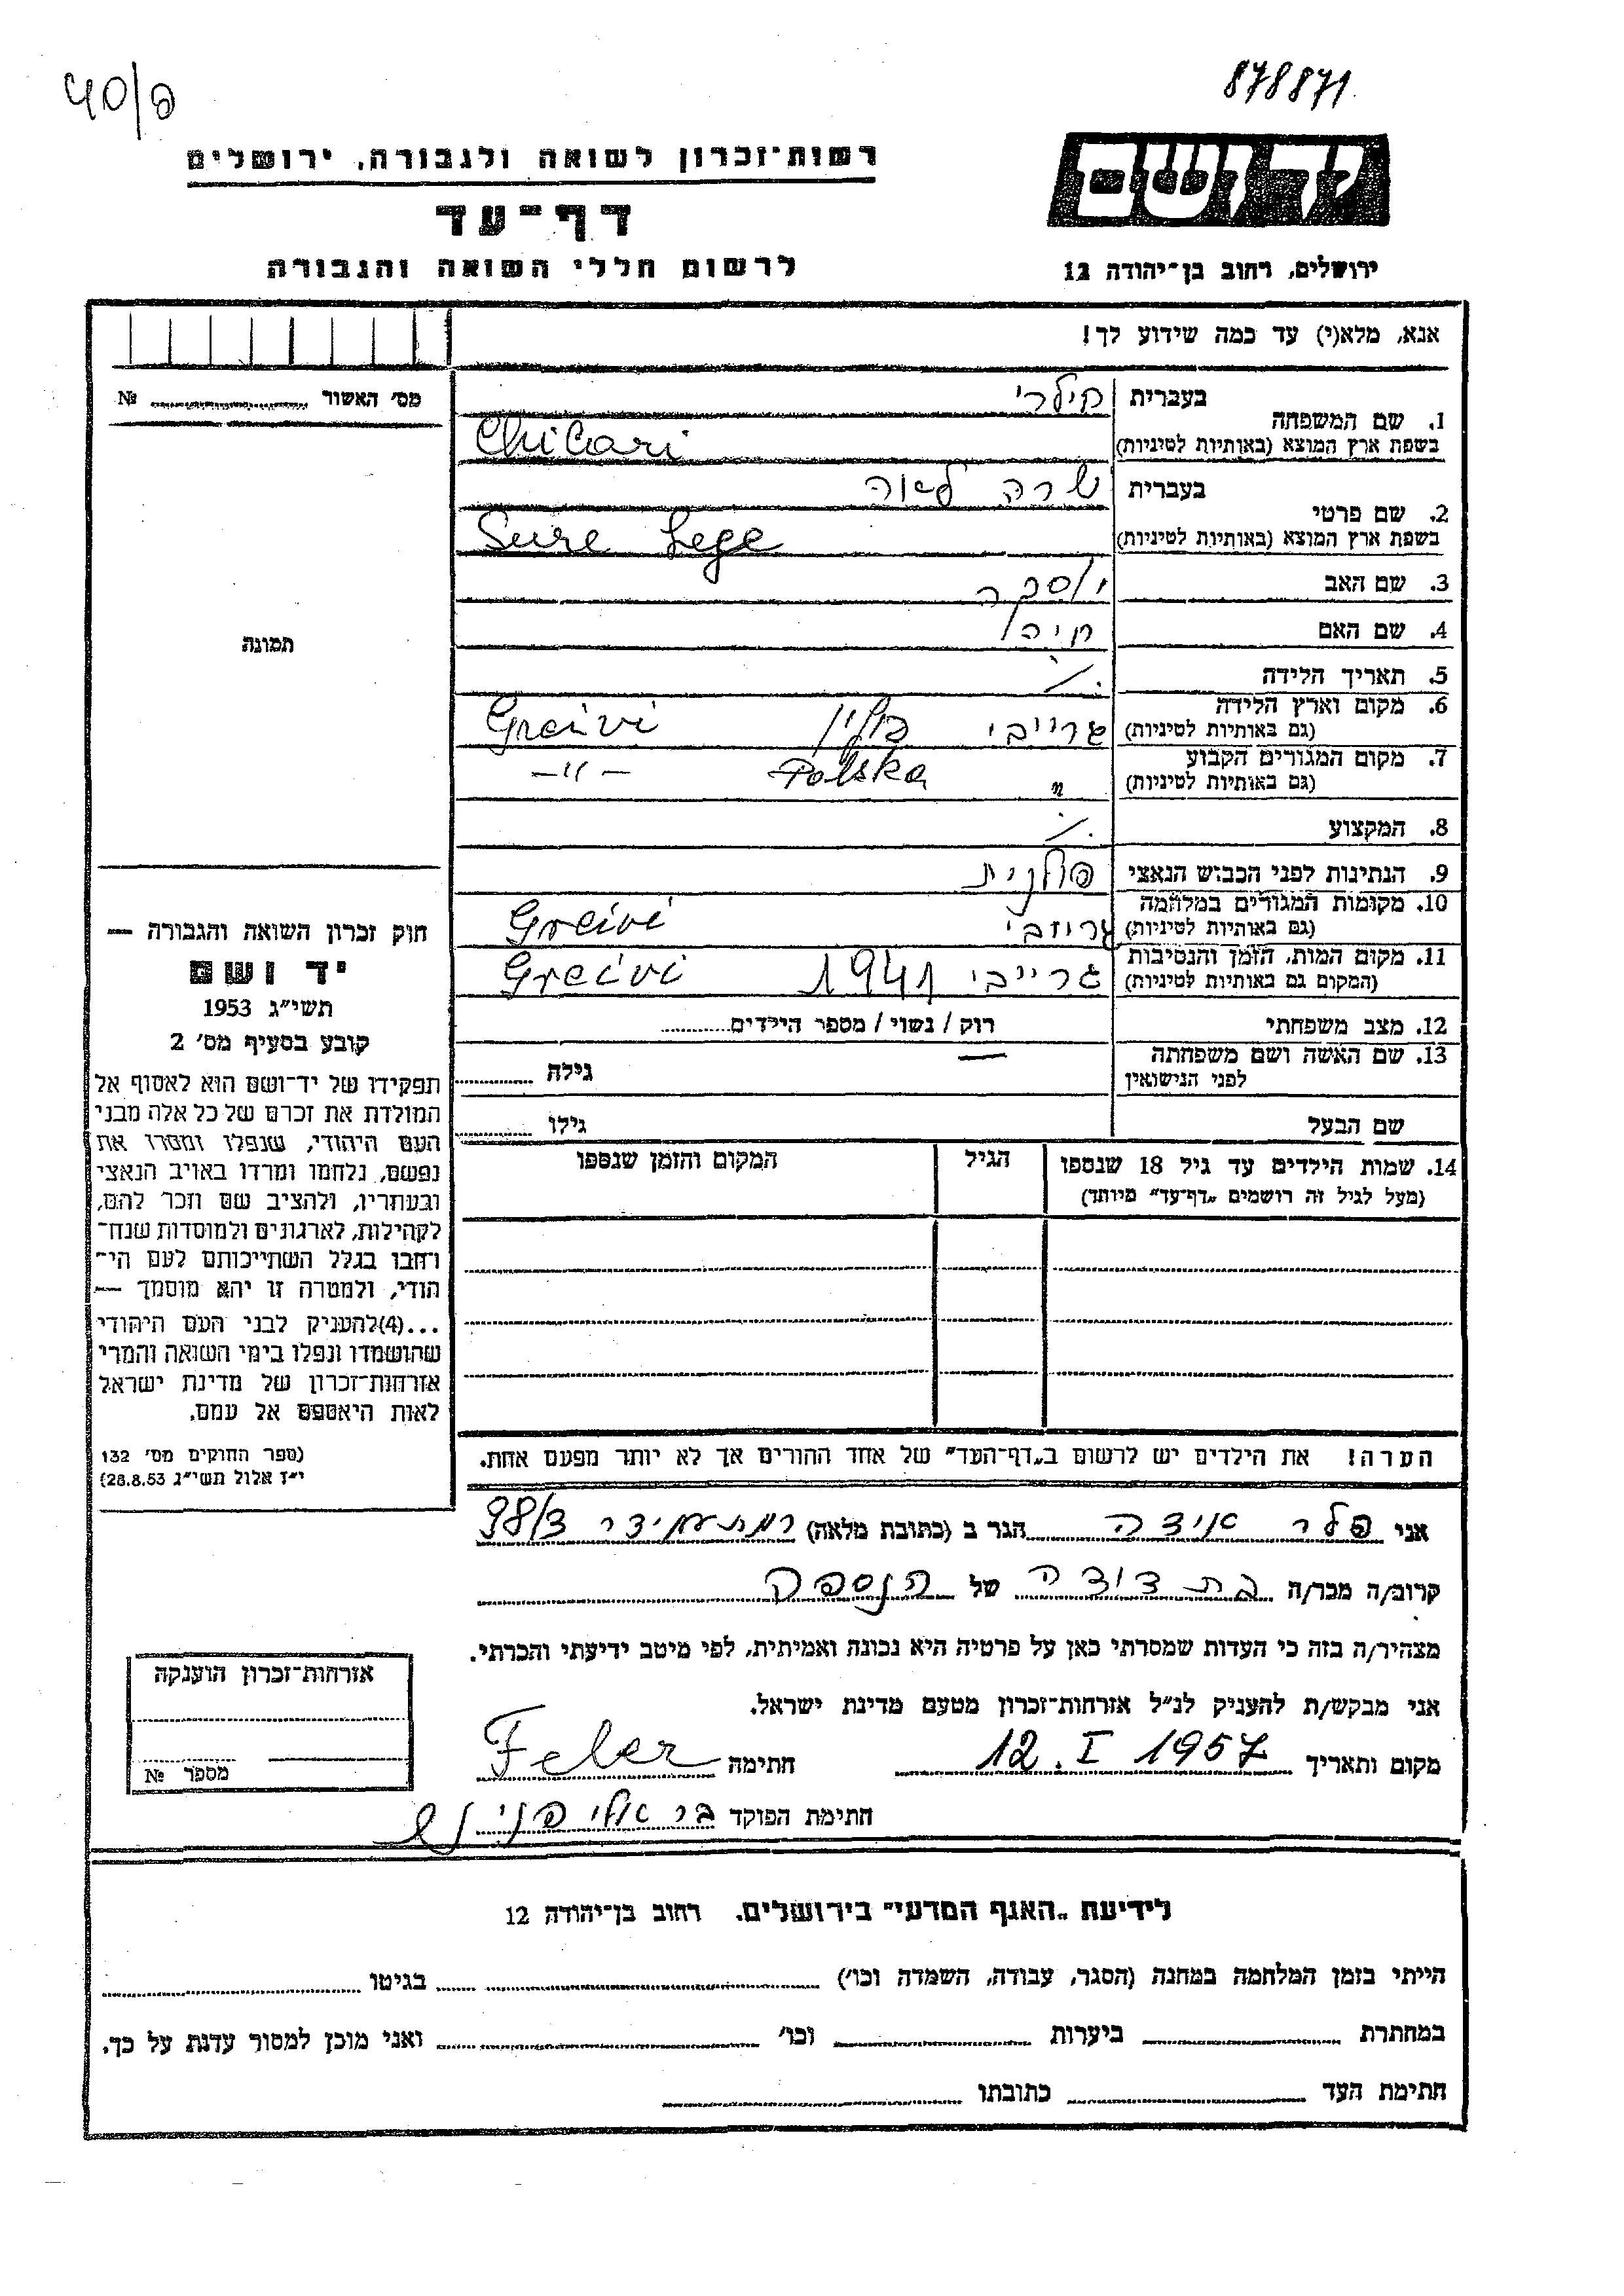 878871
40/פ
יד ושם
רשות־זכרון לשואה ולגבורה, ירושלים
דף־עד
ירושלים, רחוב בן־יהודה 12
לרשום חללי השואה והגבורה
אנא, מלא(י) עד כמה שידוע לך!
מס׳ האשור № 
1. שם המשפחה
בעברית
בשפת ארץ המוצא (באותיות לטיניות)
Chilari
2. שם פרטי
בעברית שרה לאה
בשפת ארץ המוצא (באותיות לטיניות) Sure Lege
3. שם האב
4. שם האם חיה
5. תאריך הלידה ./.
6. מקום וארץ הלידה
(גם באותיות לטיניות) גרייבי פולין Greivi
7. מקום המגורים הקבוע
(גם באותיות לטיניות) " Polska —"—
8. המקצוע ./.
9. הנתינות לפני הכבוש הנאצי פולנית
10. מקומות המגורים במלחמה
(גם באותיות לטיניות) Greivi
11. מקום המות, הזמן והנסיבות
(המקום גם באותיות לטיניות) גרייבי 1941 Greivi
12. מצב משפחתי רוק / נשוי / מספר הילדים
13. שם האשה ושם משפחתה
לפני הנישואין — גילה
שם הבעל גילו
14. שמות הילדים עד גיל 18 שנספו הגיל המקום והזמן שנספו
(מעל לגיל זה רושמים „דף־עד” מיוחד)
הערה! את הילדים יש לרשום ב„דף־העד” של אחד ההורים אך לא יותר מפעם אחת.
תמונה
חוק זכרון השואה והגבורה —
יד ושם
תשי״ג 1953
קובע בסעיף מס׳ 2
תפקידו של יד־ושם הוא לאסוף אל
המולדת את זכרם של כל אלה מבני
העם היהודי, שנפלו ומסרו את
נפשם, נלחמו ומרדו באויב הנאצי
ובעוזריו, ולהציב שם וזכר להם,
לקהילות, לארגונים ולמוסדות שנח־
רחבו בגלל השתייכותם לעם הי־
הודי, ולמטרה זו יהא מוסמך —
...(4)להעניק לבני העם היהודי
שהושמדו ונפלו בימי השואה והמרי
אזרחות־זכרון של מדינת ישראל
לאות היאספם אל עמם.
(ספר החוקים מס׳ 132
י״ז אלול תשי״ג 28.8.53)
אני פלר אידה הגר ב (כתובת מלאה) רמת עמידר 98/3
קרוב/ה מבר/ה בת דודה של הנספה
מצהיר/ה בזה כי העדות שמסרתי כאן על פרטיה היא נכונה ואמיתית, לפי מיטב ידיעתי והכרתי.
אני מבקש/ת להעניק לנ״ל אזרחות־זכרון מטעם מדינת ישראל.
מקום ותאריך 12. I 1957 חתימה Feler
חתימת הפוקד
אזרחות־זכרון הוענקה
מספר №
לידיעת „האגף המדעי” בירושלים. רחוב בן־יהודה 12
הייתי בזמן המלחמה במחנה (הסגר, עבודה, השמדה וכו׳) בגיטו
במחתרת ביערות וכו׳ ואני מוכן למסור עדות על כך.
חתימת העד כתובתו